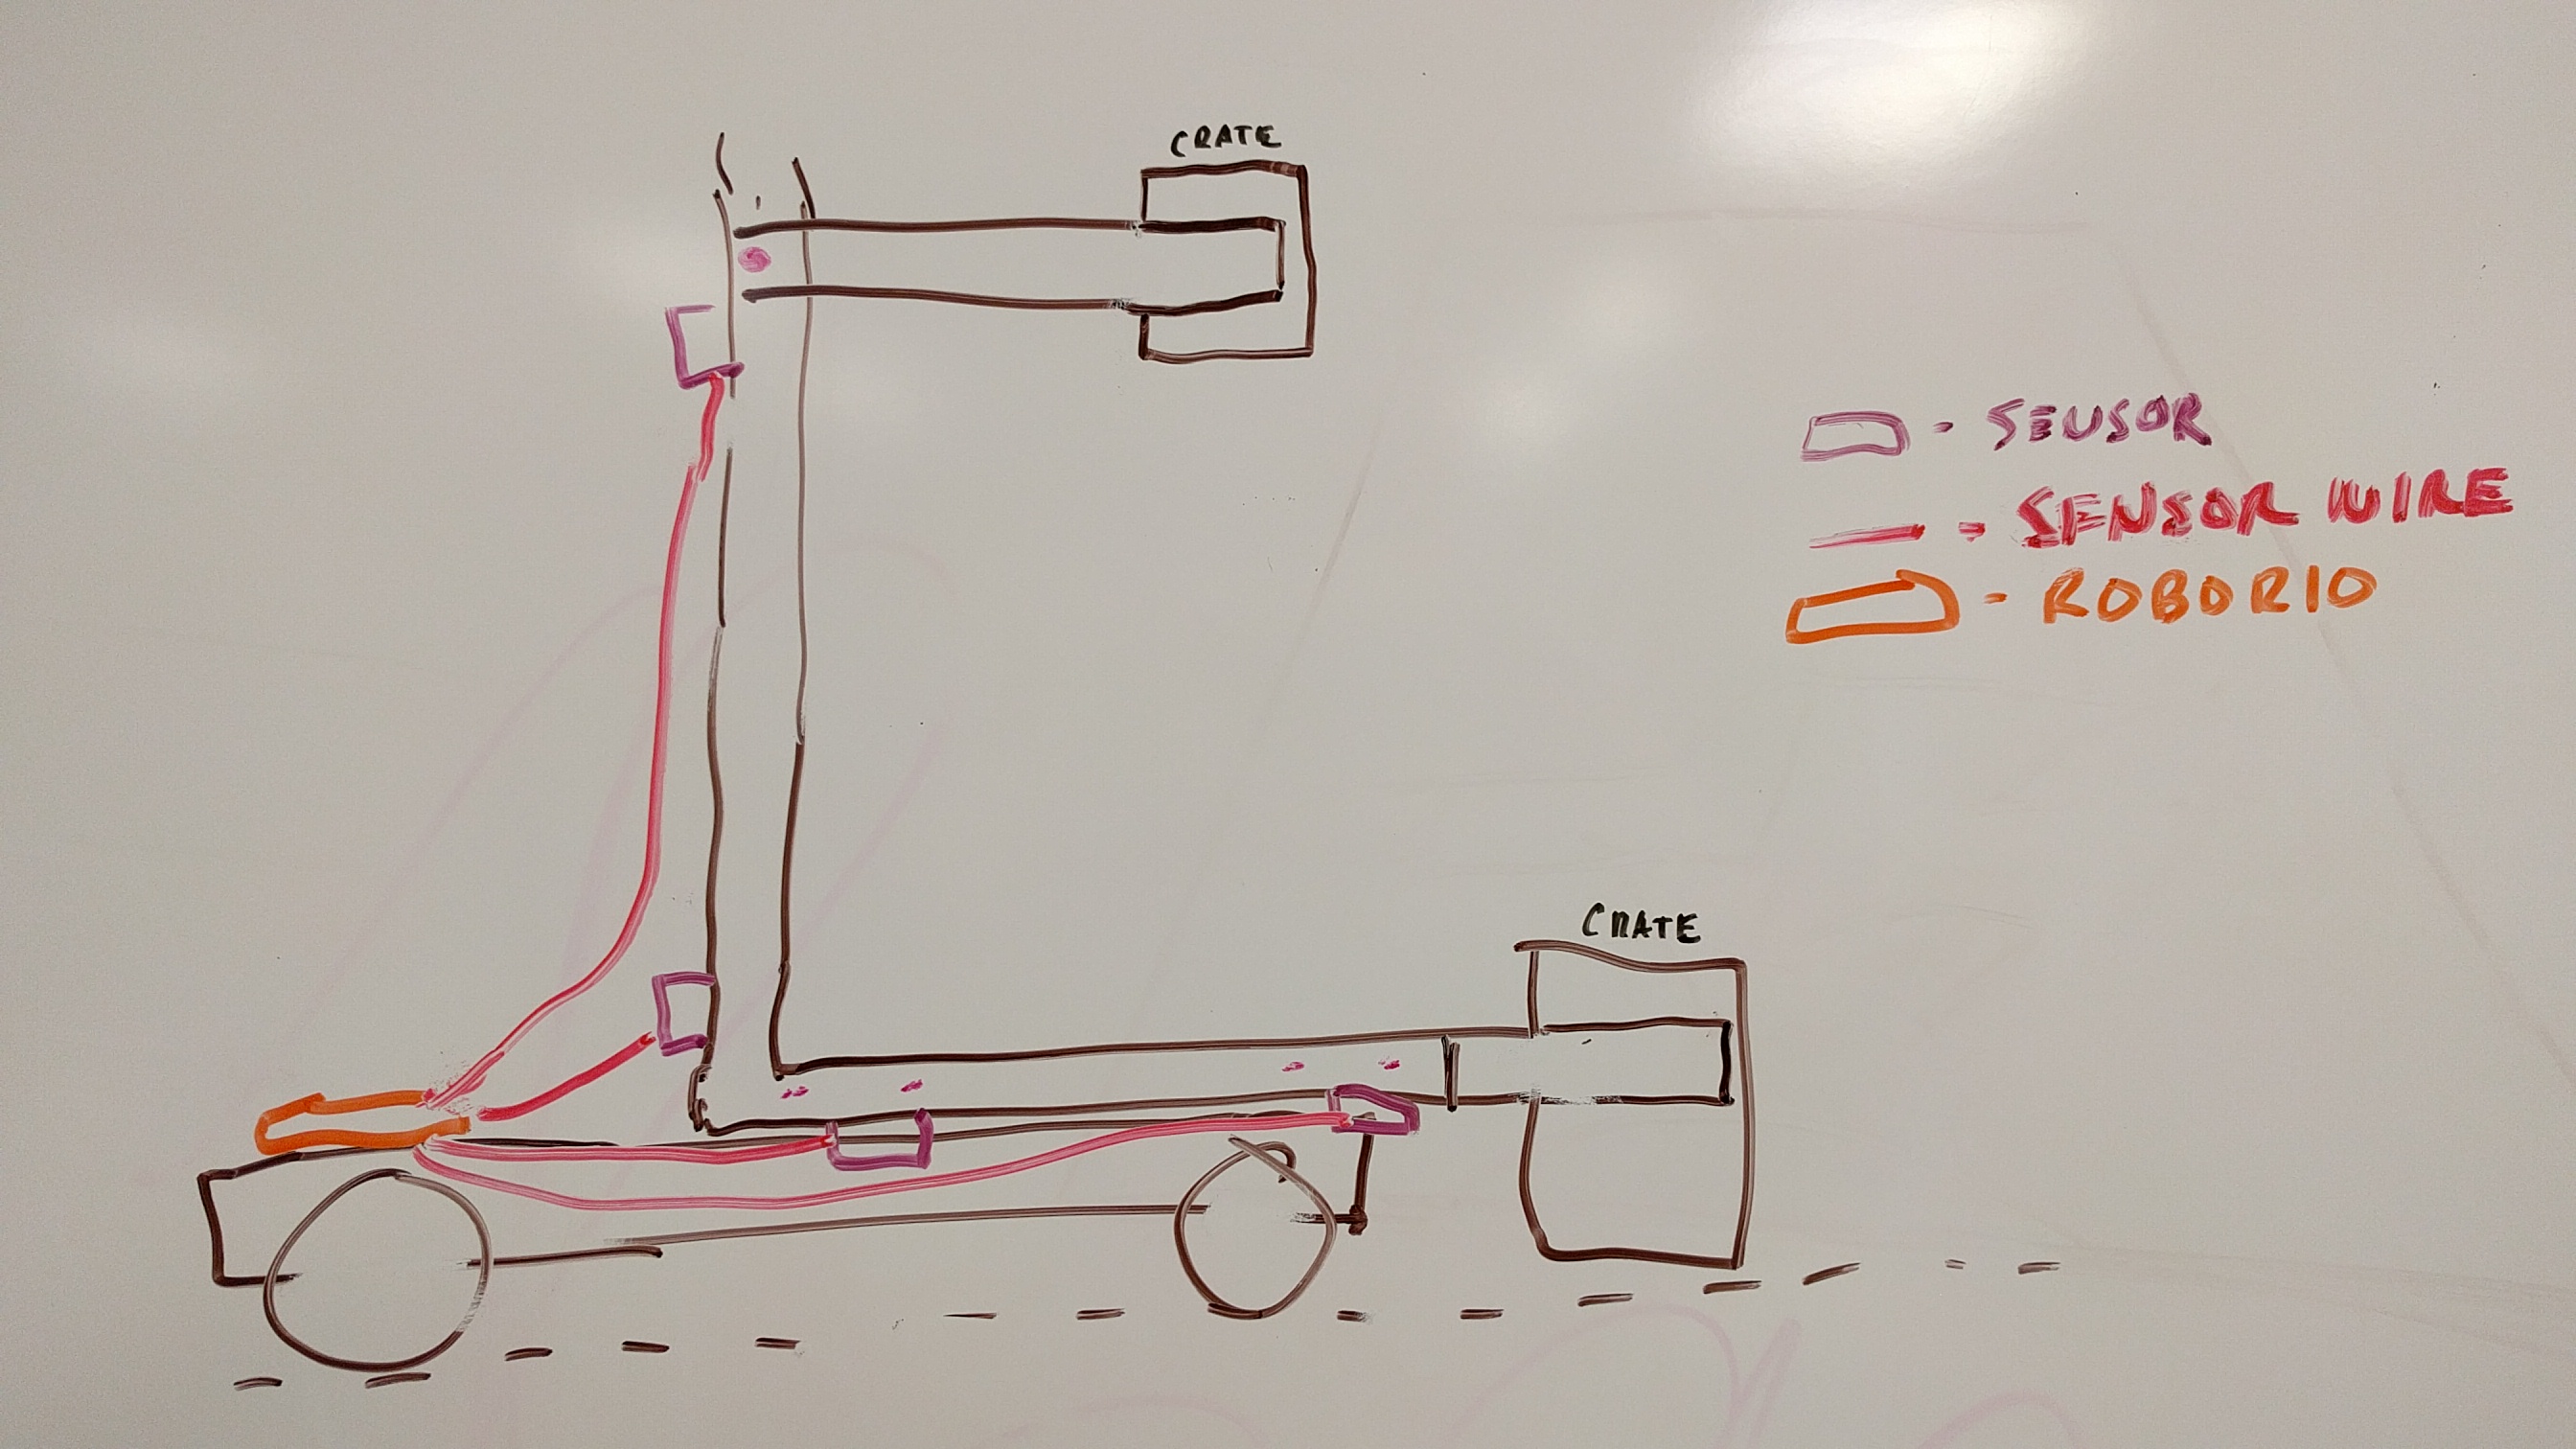 CRATE
- SENSOR
- SENSOR WIRE
- ROBORIO
CRATE